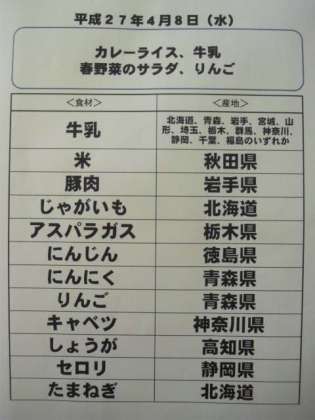 平成27年4月8日(水)
カレーライス、牛乳
春野菜のサラダ、りんご
<食材> <産地>
牛乳 北海道、青森、岩手、宮城、山
形、埼玉、栃木、群馬、神奈川、
静岡、千葉、福島のいずれか
米 秋田県
豚肉 岩手県
じゃがいも 北海道
アスパラガス 栃木県
にんじん 徳島県
にんにく 青森県
りんご 青森県
キャベツ 神奈川県
しょうが 高知県
セロリ 静岡県
たまねぎ 北海道